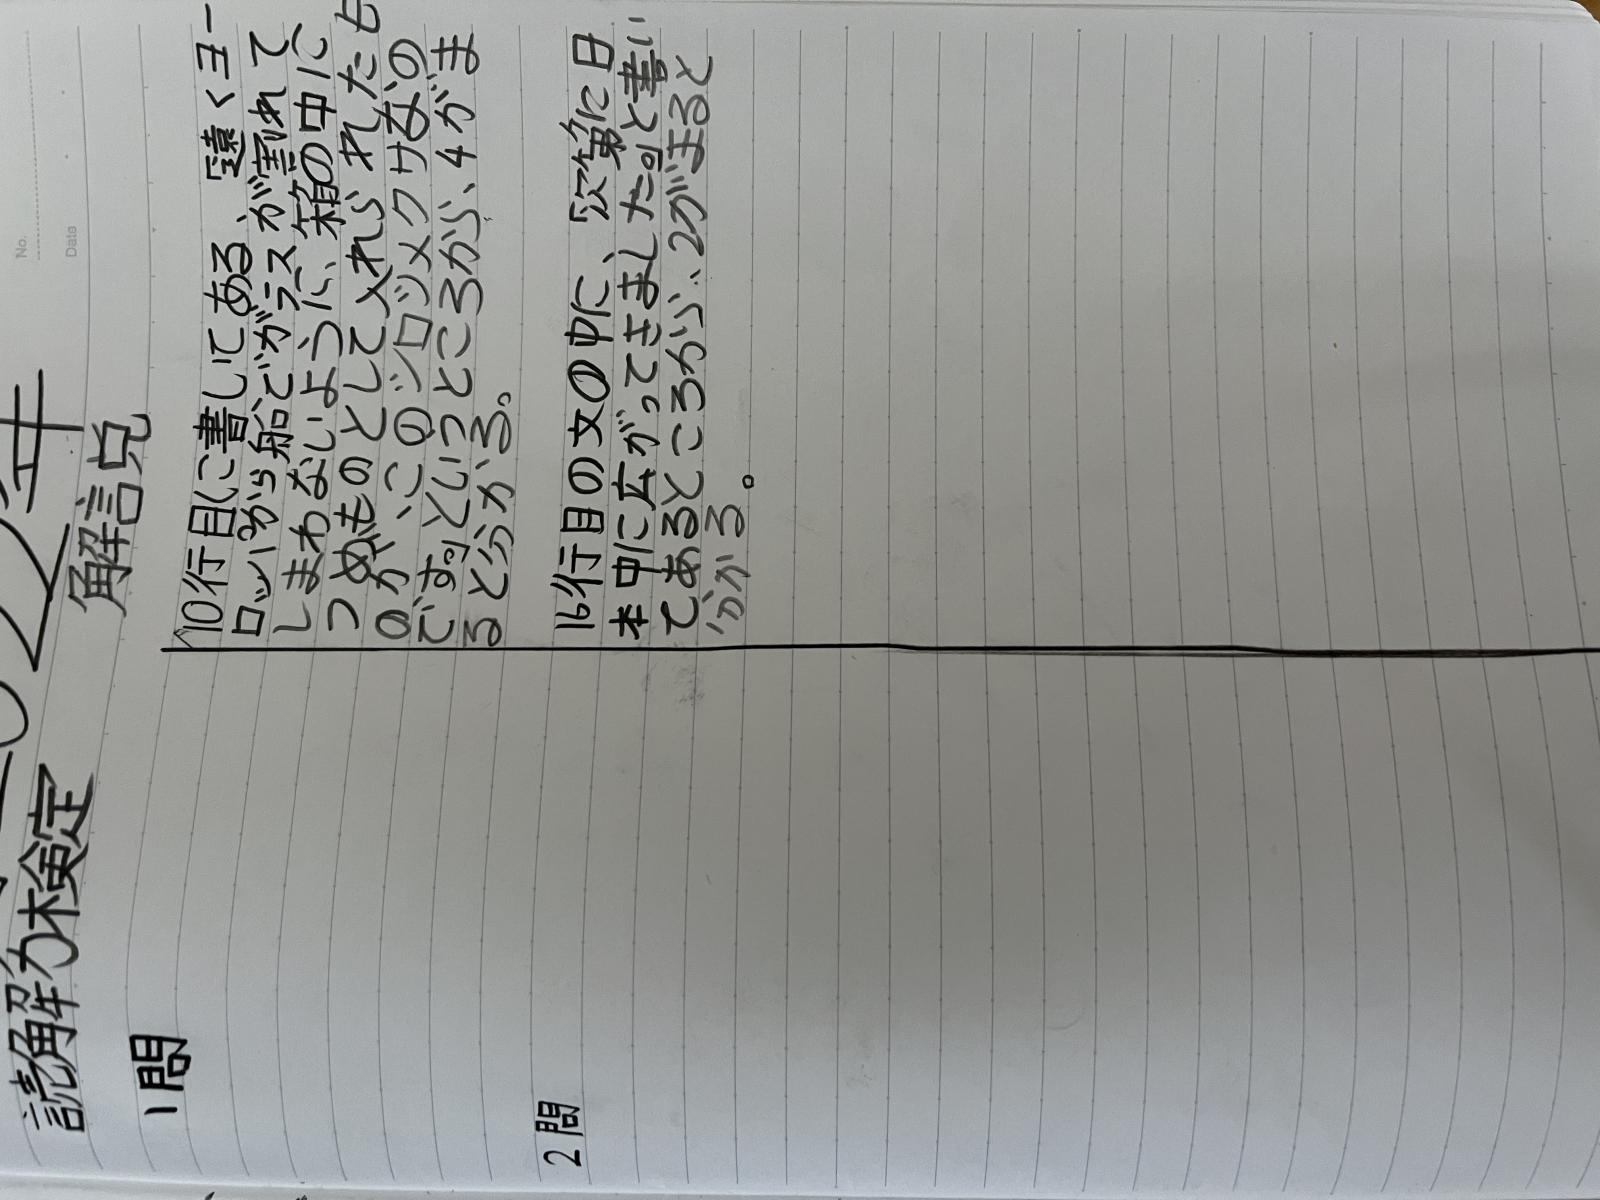 No.
Data
22年
読解力検定
解説
1問
10行目に書いてある、「遠くヨー
ロッパから船でガラスが割れて
しまわないように、箱の中に
つめものとして入れられたも
のが、このシロツメクサなの
です」というところから、4がま
ると分かる。
2問
16行目の文の中に、「次第に日
本中に広がってきました」と書い
てあるところから、2がまると
分かる。